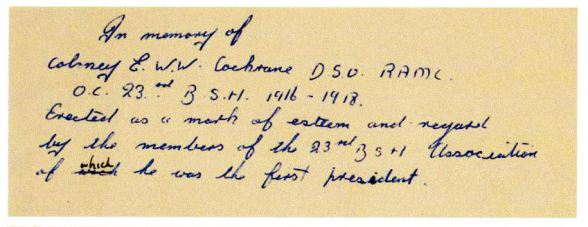 In memory of
Colnrey E.W.W. Cochrane D S.O. RAMC.
O.C. 23rd B S.H. 1916 - 1918.
Erected as a mark of esteem and regard
by the members of the 23rd B S H Association
of which he was the first president.